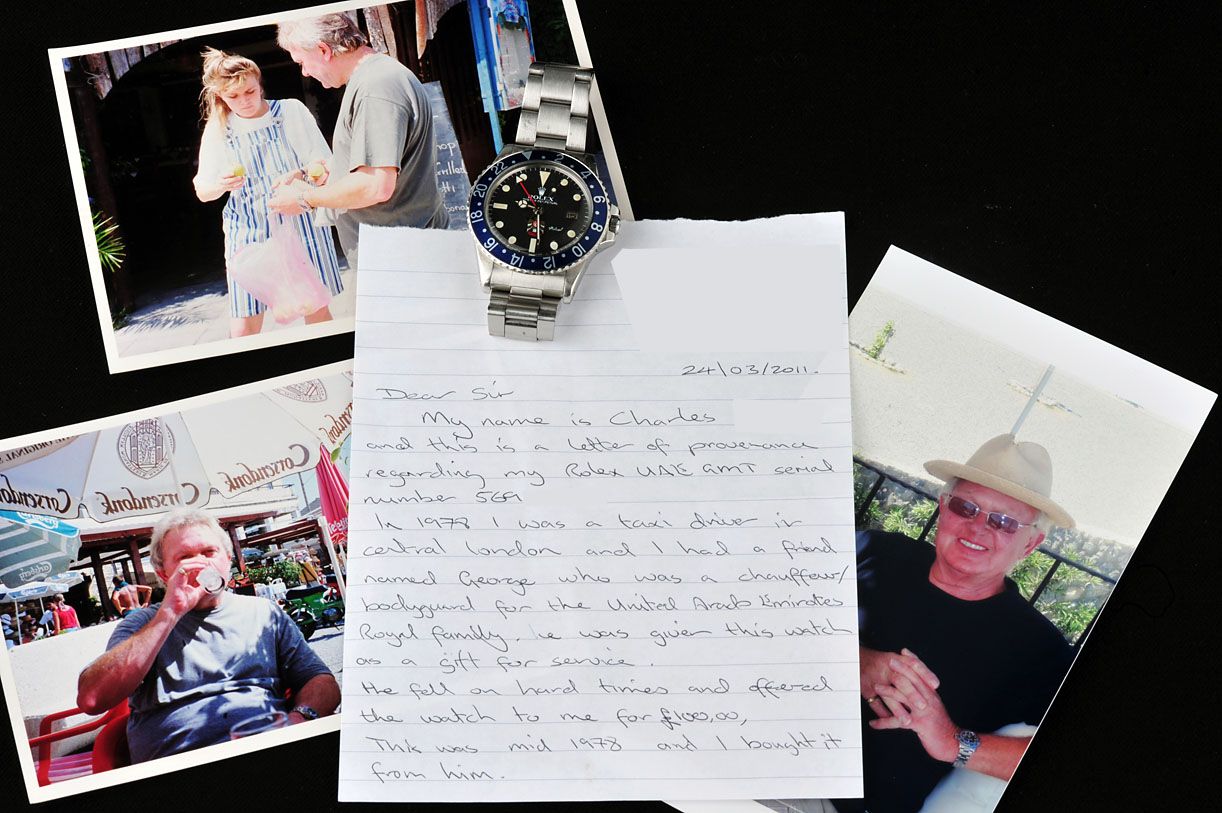 22 2 4 6 8 10 12 14 16 18 20
ROLEX
24/03/2011.
Dear Sir
My name is Charles
and this is a letter of provenance
regarding my Rolex UAE GMT serial
number 569
In 1978 I was a taxi driver in
central london and I had a friend
named George who was a chauffeur/
bodyguard for the United Arab Emirates
Royal family. he was given this watch
as a gift for service.
He fell on hard times and offered
the watch to me for £100,00,
This was mid 1978 and I bought it
from him.
Corsendonk
Corsendonk
Corsendonk
Carlsberg